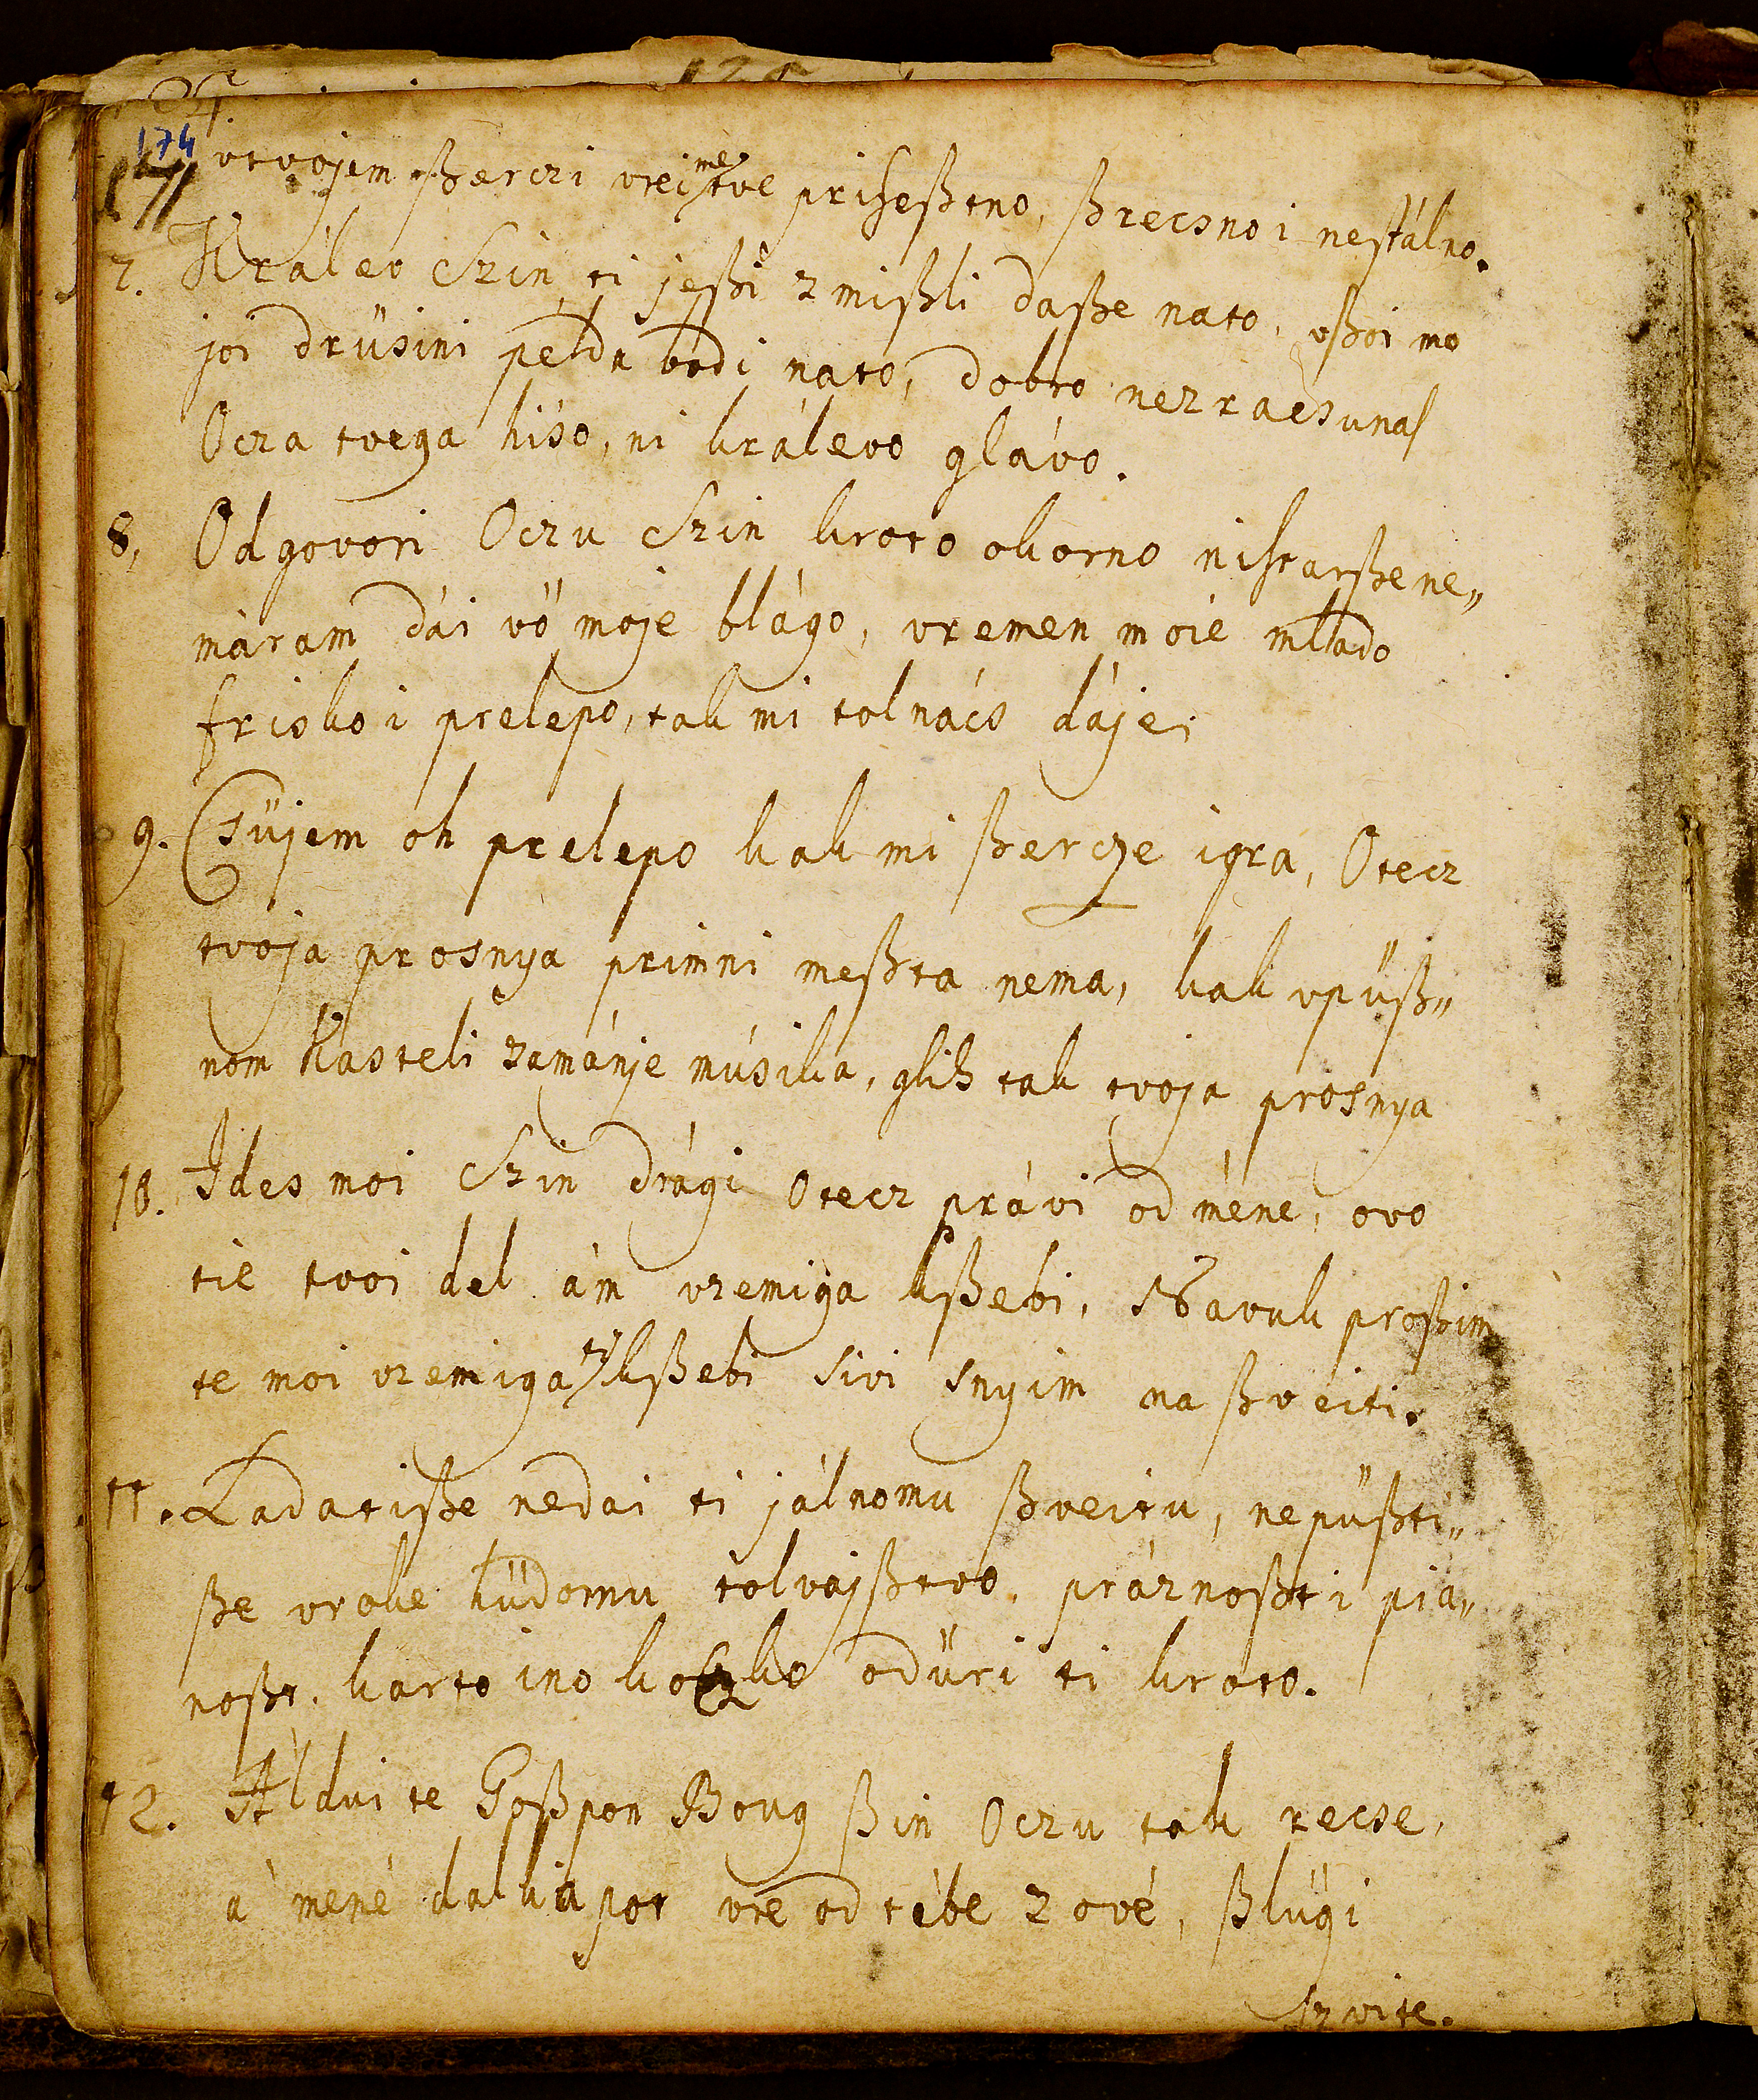 174
171
vtvojem ßerczi vrei me prisheßtno, ßrecsno i nestálno.
7. Králev Szin ti jeßi zmißli daße nato, vßoi mo
joi drüsini példa bodi nato, dobro nezracsunas
Ocza tvega hiso, ni králevo glávo.
8, Odgovori Oczu Szin kroto okorno nistarße ne„
máram dái vö moje blágo, vremen moie mlado
frisko i prelepo, tak mi tolnács dáje.
9. Csüjem oh prelepo kak mi ßercze igra, Otecz
tvoja prosnya primni meßta nema, kak vpüß„
nom kasteli zamánje músika, glih tak tvoja prosnya
10. Ides moi Szin drági Otecz právi od méne, ovo
tie tvoi del ám vzemiga kßebi, Navuk proßim
te moi vzemiga ti kßebi sivi snyim na ßveiti.
11. Ladatiße nedai ti jálnomu ßveitu, nepüßti„
ße vroke hüdomu tolvajßtvo, práznoßt i pia„
noßt, karto ino koczko odüri ti kroto.
12. Áldui te Goßpon Boug ßin Oczu tak recse,
á mené dalkia pot vre od tébe zové, ßlügi
szvite.